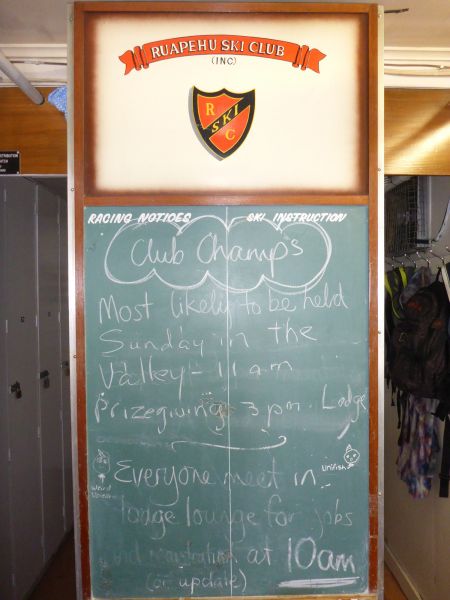 RUAPEHU SKI CLUB
(INC)
R
SKI
C
RACING NOTICES SKI INSTRUCTION
Club Champs
Most likely to be held
Sunday in the
Valley - 11 am
Prizegiving 3 pm. Lodge
Everyone meet in
lodge lounge for jobs
and registration at 10am
(or update)